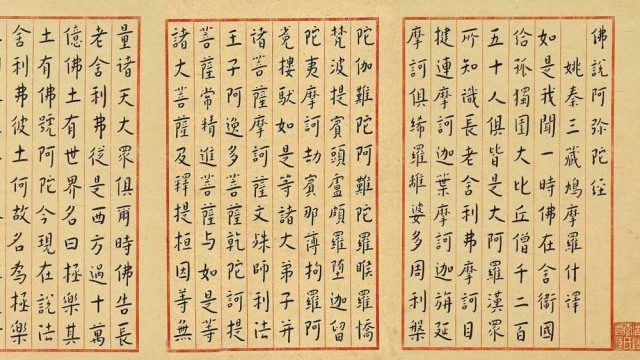 佛說阿弥陀經
姚秦三藏鳩摩羅什譯
如是我聞一時佛在舍衞國
給孤獨園大比丘僧千二百
五十人俱皆是大阿羅漢眾
所知識長老舍利弗摩訶目
揵連摩訶迦葉摩訶迦旃延
摩訶俱絺羅離婆多周利槃
陀伽難陀阿難陀羅睺羅憍
梵波提賓頭盧頗羅墮迦留
陀夷摩訶劫賓那薄拘羅阿
㝹樓馱如是等諸大弟子并
諸菩薩摩訶薩文殊師利法
王子阿逸多菩薩乾陀訶提
菩薩常精進菩薩與如是等
諸大菩薩及釋提桓因等無
量諸天大眾俱爾時佛告長
老舍利弗從是西方過十萬
億佛土有世界名曰極樂其
土有佛號阿陀今現在說法
舍利弗彼土何故名為極樂